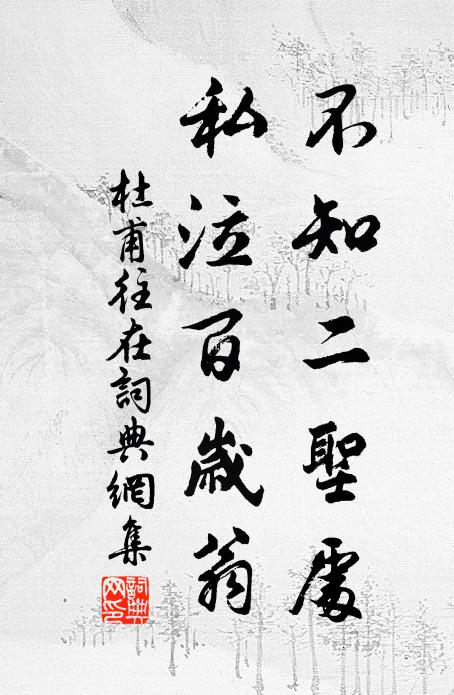 不知二聖處
私泣百歲翁
杜甫往在詞典網集
詞典网印